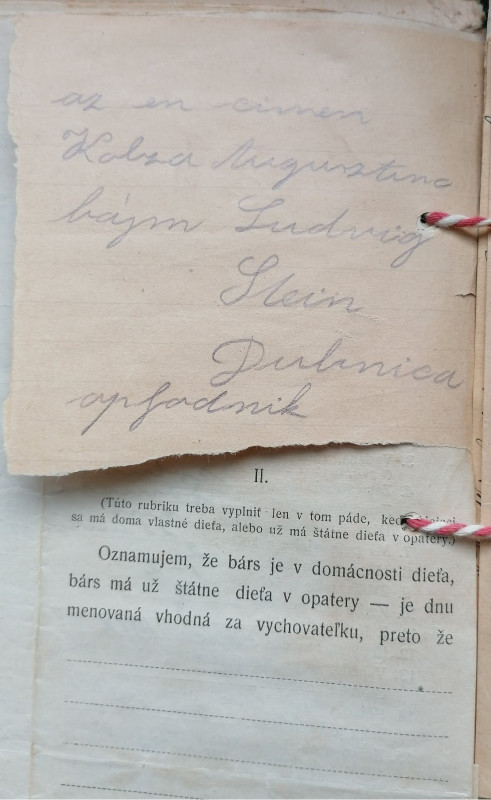 az en cimem
Kobza Augusztina
bájm Ludvig
Stein
Dubnica
opfodnik
II.
(Túto rubriku treba vyplniť len v tom páde,
sa má doma vlastné dieťa, alebo už má štátne dieťa v opatery.)
Oznamujem, že bárs je v domácnosti dieťa,
bárs má už štátne dieťa v opatery — je dnu
menovaná vhodná za vychovateľku, preto že